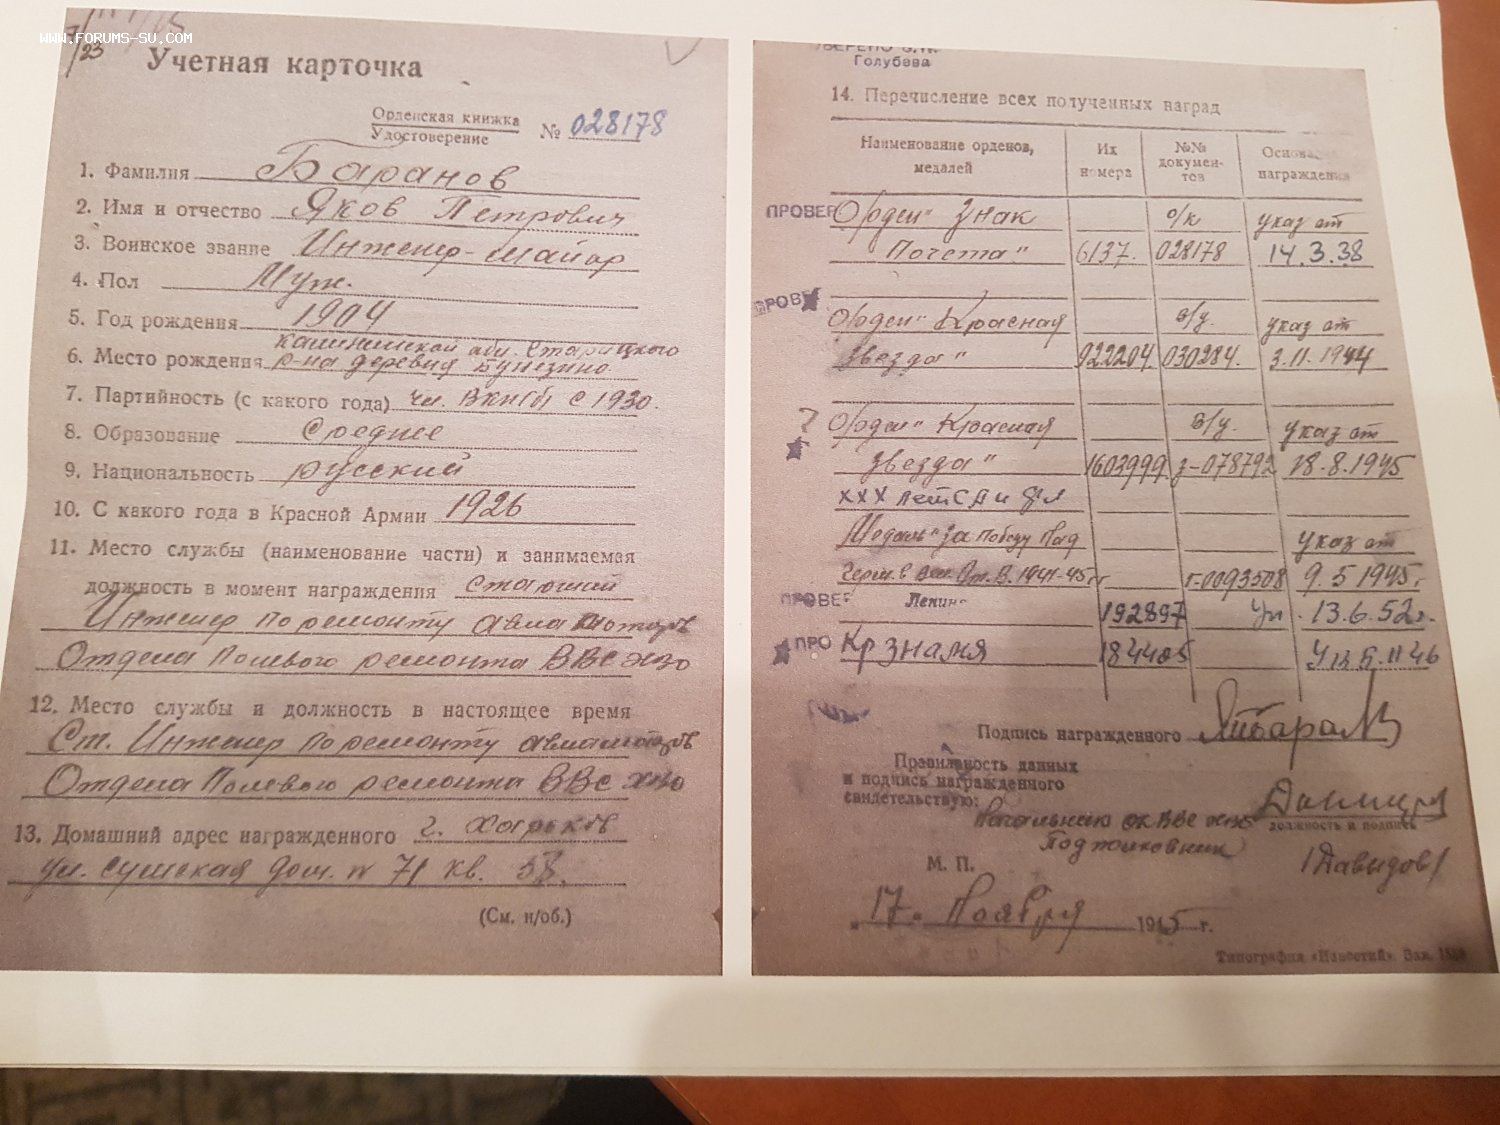 www.forums-su.com
7/23
Учетная карточка
Орденская книжка
Удостоверение
№ 028178
1. Фамилия Баранов
2. Имя и отчество Яков Петрович
3. Воинское звание Инженер-майор
4. Пол Муж.
5. Год рождения 1904
Калининской обл. Старицкого
6. Место рождения р-на деревня
7. Партийность (с какого года) чл. ВКП(б) с 1930.
8. Образование Среднее
9. Национальность русский
10. С какого года в Красной Армии 1926
11. Место службы (наименование части) и занимаемая
должность в момент награждения старший
Инженер по ремонту авиамоторов
Отдела Полевого ремонта ВВС ХВО
12. Место службы и должность в настоящее время
Ст. Инженер по ремонту авиамоторов
Отдела Полевого ремонта ВВС ХВО
13. Домашний адрес награжденного г. Харьков
ул. Сумская дом. № 71 кв. 58.
(См. н/об.)
Голубева
14. Перечисление всех полученных наград
Наименование орденов, медалей
Их номера
№№ докумен-тов
Основа награждения
ПРОВЕР Орден "Знак о/к указ от
Почета" 6137. 028178 14.3.38
ПРОВЕ
Орден "Красная в/у. указ от
Звезда" 922204. 030284. 3.11.1944
Орден "Красная в/у. указ от
Звезда" 1603999. з-078792 18.8.1945
XXX лет СА и
Медаль "За Победу Над указ от
Герм. в Вел. От. В. 1941-45 гг г-0093508 9.5 1945г
ПРОВЕР Ленина 192897 Ук. 13.6.52г.
ПРО Кр Знамя 184405
Подпись награжденного
Правильность данных
и подпись награжденного
свидетельствую:
Начальник ОК ВВС ХВО
должность и подпись
Подполковник
/Давыдов/
М. П.
" 17 " Ноября 1945 г.
Типография «Известий». Зак.